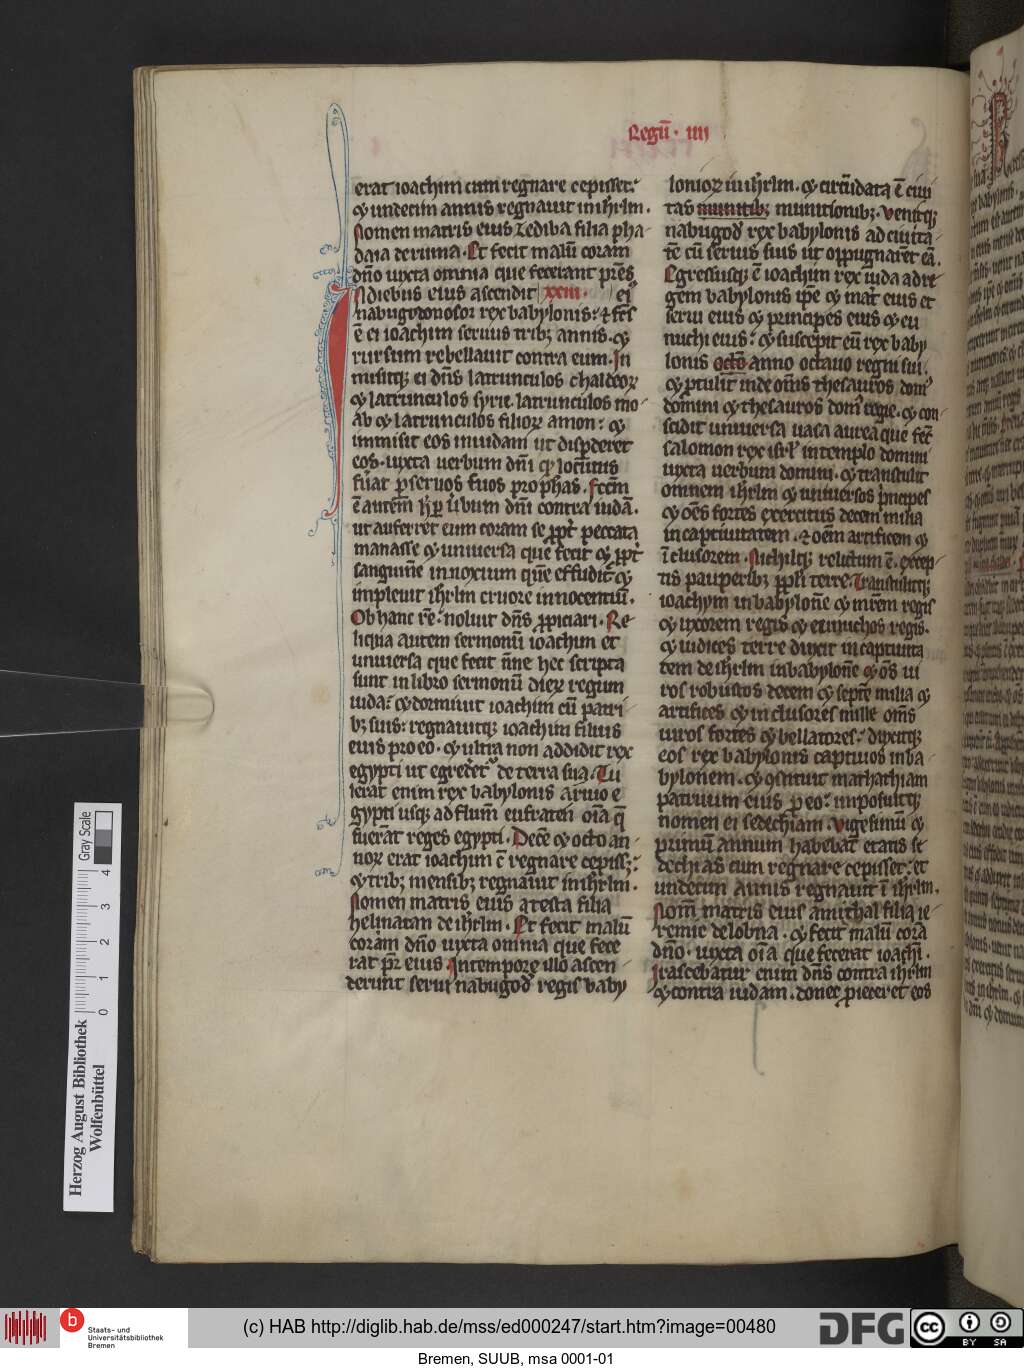 Regū · iiij
erat ioachim cum regnare cepisset:
⁊ undecim annis regnauit in ihrlm.
Nomen matris eius Zediba filia pha-
daia de ruma. Et fecit malū coram
dño iuxta omnia que fecerant pr̄es
In diebus eius ascendit xxiiii. ei9
nabugodonosor rex babylonis: ⁊ fc̄s
ē ei ioachim seruus tribȝ annis. ⁊
rursum rebellauit contra eum. In
misitqȝ ei dñs latrunculos chaldeoꝝ
⁊ latrunculos syrie. latrunculos mo-
ab ⁊ latrunculos filioꝝ amon: ⁊
immisit eos in iudam ut disꝑderet
eos. iuxta uerbum dñi qđ locutus
fu̾at ꝑ seruos suos prophas. Fcm̄
ē autem h̾ ꝑ u̾bum dñi contra iudā.
ut auferret eum coram se ꝓpt̾ peccata
manasse ⁊ uniuersa que fecit ⁊ ꝓpt̾
sanguinē innoxium quē effudit: ⁊
impleuit ihrlm cruore innocentiū.
Ob hanc rē: noluit dñs ꝓpiciari. Re
liqua autem sermonū ioachim et
uniuersa que fecit ñne hec scripta
sunt in libro sermonū dieꝝ regum
iuda: ⁊ dormiuit ioachim cū patri-
bȝ suis: regnauitqȝ ioachim filius
eius pro eo. ⁊ ultra non addidit rex
egypti ut egredet̾ de terra sua. Tu
lerat enim rex babylonis a riuo e
gypti usqȝ ad flum̄ eufraten oīa q̄
fuerāt reges egypti. Decē ⁊ octo an-
noꝝ erat ioachim c̄ regnare cepissȝ:
⁊ tribȝ mensibȝ regnauit in ihrlm.
Nomen matris eius atesta filia
helinatan de ihrlm. Et fecit malū
coram dño iuxta omnia que fece
rat pr̄ eius. In tempore illo ascen-
derunt serui nabugod̾ regis baby
lonioꝝ in ihrlm. ⁊ circūdata ē ciui
tas munitibȝ munitionibȝ. Venitqȝ
nabugod̾ rex babylonis ad ciuita-
tē cū seruis suis ut oppugnaret eā.
Egressusqȝ ē ioachim rex iuda ad re
gem babylonis ip̄e ⁊ mat̾ eius et
serui eius ⁊ principes eius ⁊ eu
nuchi eius: ⁊ suscepit eū rex baby
lonis octō anno octauo regni sui.
⁊ ꝓtulit inde om̄s thesauros dom9
domini ⁊ thesauros dom9 regie. ⁊ con-
scidit uniuersa uasa aurea que fec̾
salomon rex isrl̾ in templo domini
iuxta uerbum domini. ⁊ transtulit
omnem ihrlm ⁊ uniuersos p̾ncipes
⁊ oēs fortes exercitus decem milia
in captiuitatem. ⁊ oēm artificem ⁊
īclusorem. Nichilqȝ relictum ē. excep-
tis pauperibȝ ppl̾i terre. Transtulitqȝ
ioachym in babylonē ⁊ mr̄em regis
⁊ uxorem regis ⁊ eunuchos regis.
⁊ iudices terre duxit in captiuita
tem de ihrlm in babylonē ⁊ oēs ui
ros robustos decem ⁊ septē milia ⁊
artifices ⁊ inclusores mille om̄s
uiros fortes ⁊ bellatores: duxitqȝ
eos rex babylonis captiuos in ba-
bylonem. ⁊ ꝯstituit mathathiam
patruum eius p̄ eo: imposuitqȝ
nomen ei sedechiam. Vigesimū ⁊
primū annum habebat̾ etatis se
dechias cum regnare cepisset: et
undecim annis regnauit ī ihrlm.
Nom̄ matris eius amithal filia ie-
remie de lobna. ⁊ fecit malū corā
dño. iuxta oīa que fecerat ioachī.
Irascebatur enim dñs contra ihrlm
⁊ contra iudam. donec ꝓiceret eos
Herzog August Bibliothek
Wolfenbüttel
Gray Scale
0 1 2 3 4
Staats- und
Universitätsbibliothek
Bremen
(c) HAB http://diglib.hab.de/mss/ed000247/start.htm?image=00480
DFG
cc BY SA
Bremen, SUUB, msa 0001-01